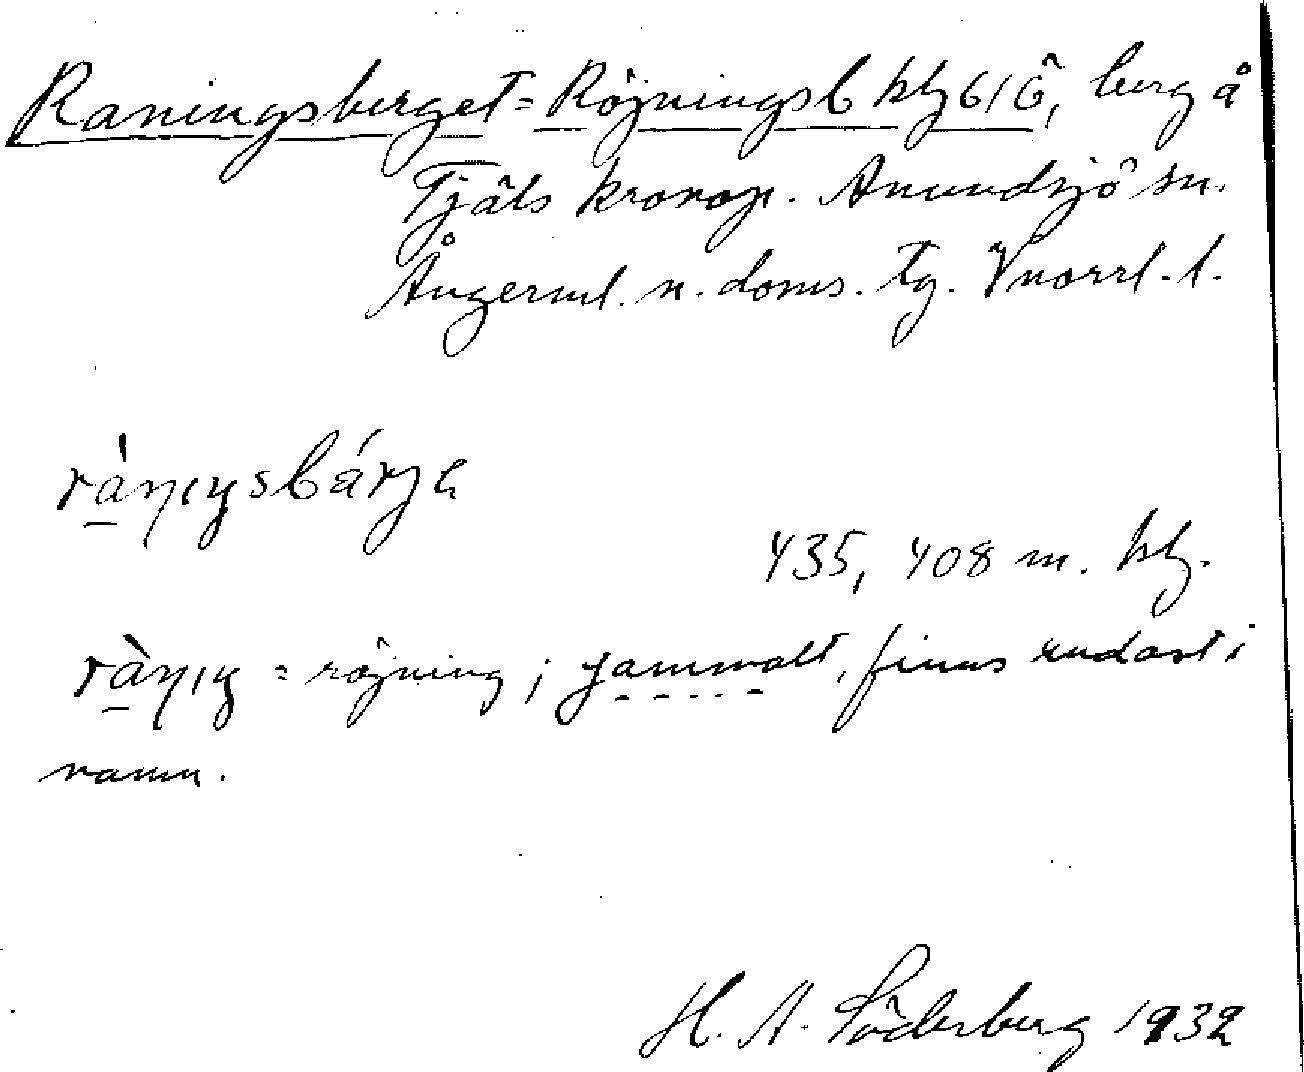 Raningsberget = Röjningsb hlz 61 Ö, berg å
Tjäls kronop. Anundsjö sn.
Ångerml. n. doms. tg. Vnorrl. l.
ràṇıŋsbárjɑ
435, 408 m. hlz.
ràṇıŋ = röjning; gammalt, finns endast i
namn.
H. A. Söderberg 1932